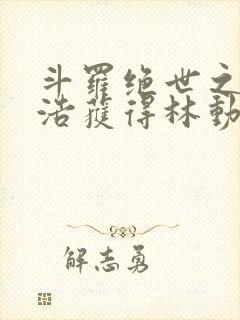 斗羅绝世之
浩獲得林動
解志勇